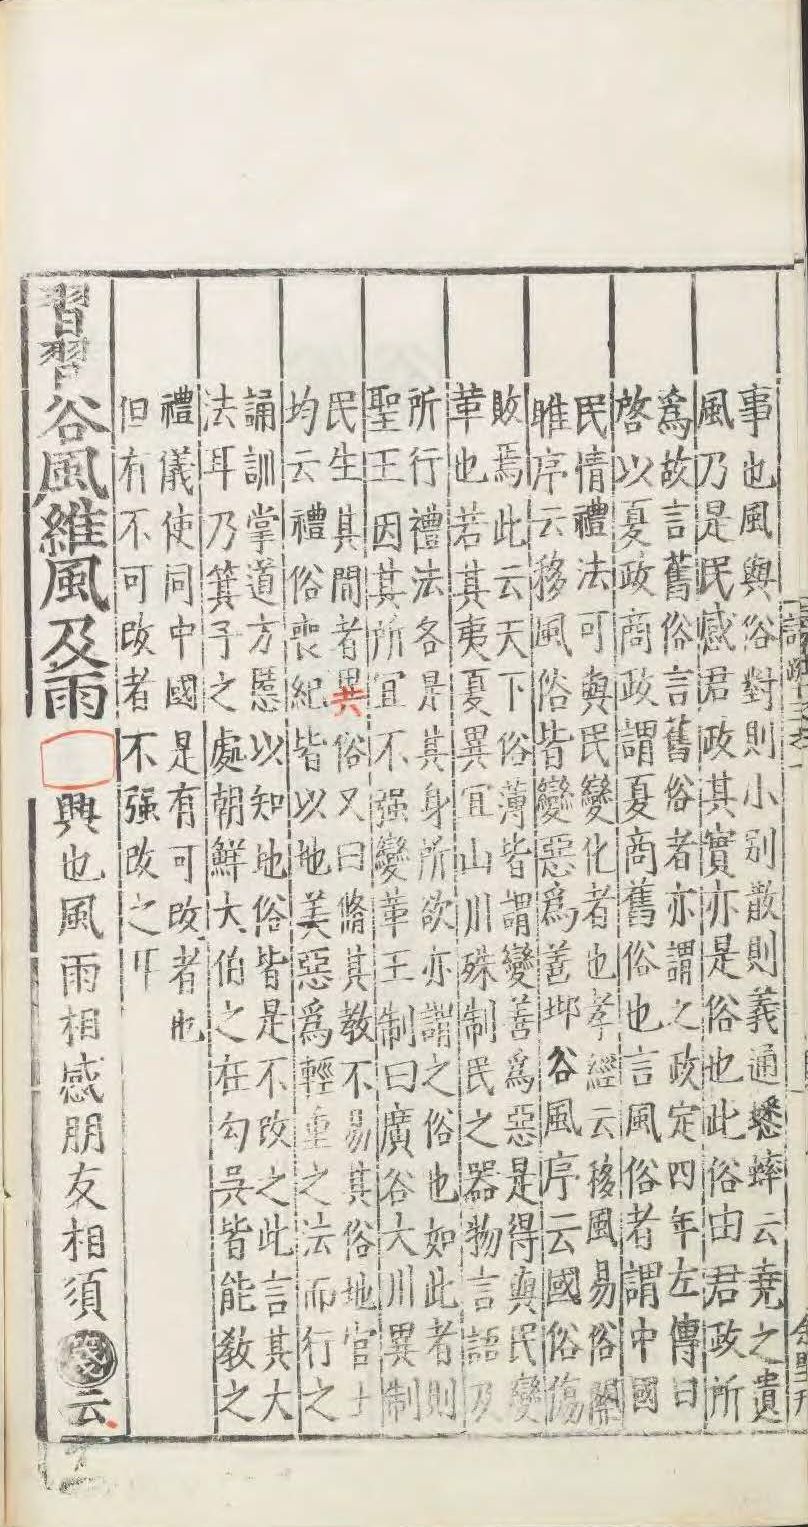 事也風與俗對則小别散則義通蟋蟀云堯之遺
風乃是民感君政其實亦是俗也此俗由君政所
爲故言舊俗言舊俗者亦謂之政定四年左傳曰
啓以夏政商政謂夏商舊俗也言風俗者謂中國
民情禮法可與民變化者也孝經云移風易俗關
雎序云移風俗皆變惡爲善邶谷風序云國俗傷
敗焉此云天下俗薄皆謂變善爲惡是得與民變
革也若其夷夏異宜山川殊制民之器物言語及
所行禮法各是其身所欲亦謂之俗也如此者則
聖王因其所宜不强變革王制曰廣谷大川異制
民生其間者異俗又曰脩其教不易其俗地官土
均云禮俗喪紀皆以地美惡爲輕重之法而行之
誦訓掌道方慝以知地俗皆是不改之此言其大
法耳乃箕子之處朝鮮大伯之在勾吳皆能教之
禮儀使同中國是有可改者也
但有不可改者不强改之耳
習習谷風維風及雨 興也風雨相感朋友相須箋云